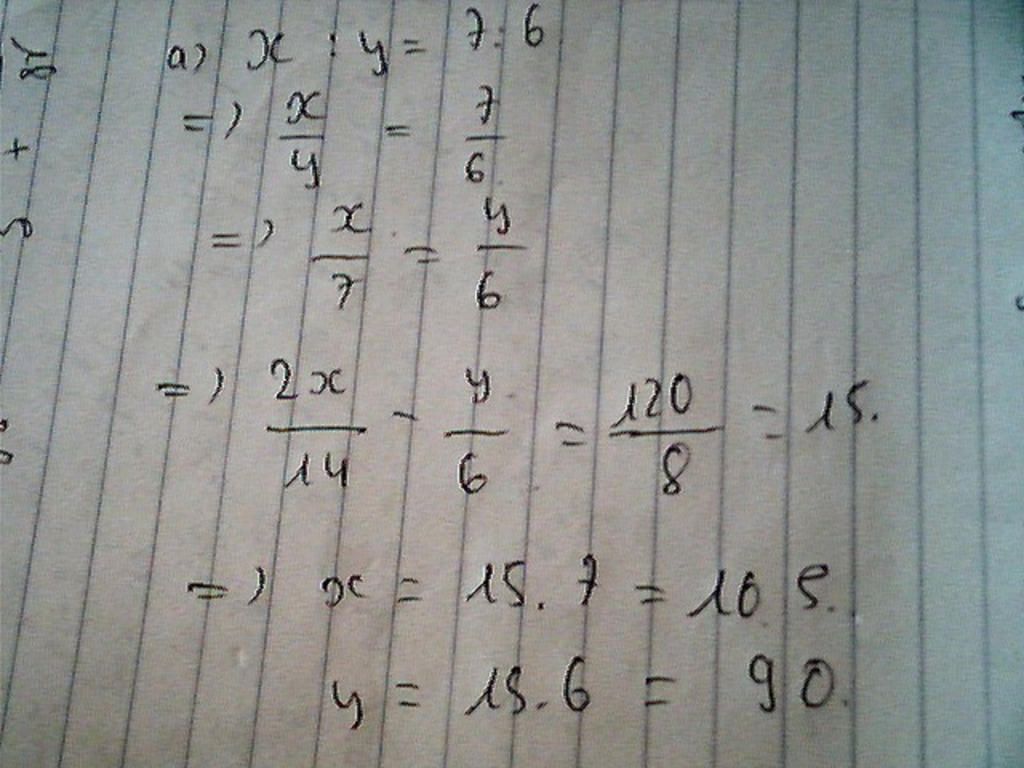 a) x : y = 7 : 6
=> x/y = 7/6
=> x/7 = y/6
=> 2x/14 - y/6 = 120/8 = 15.
=> x = 15 . 7 = 105.
y = 15 . 6 = 90.